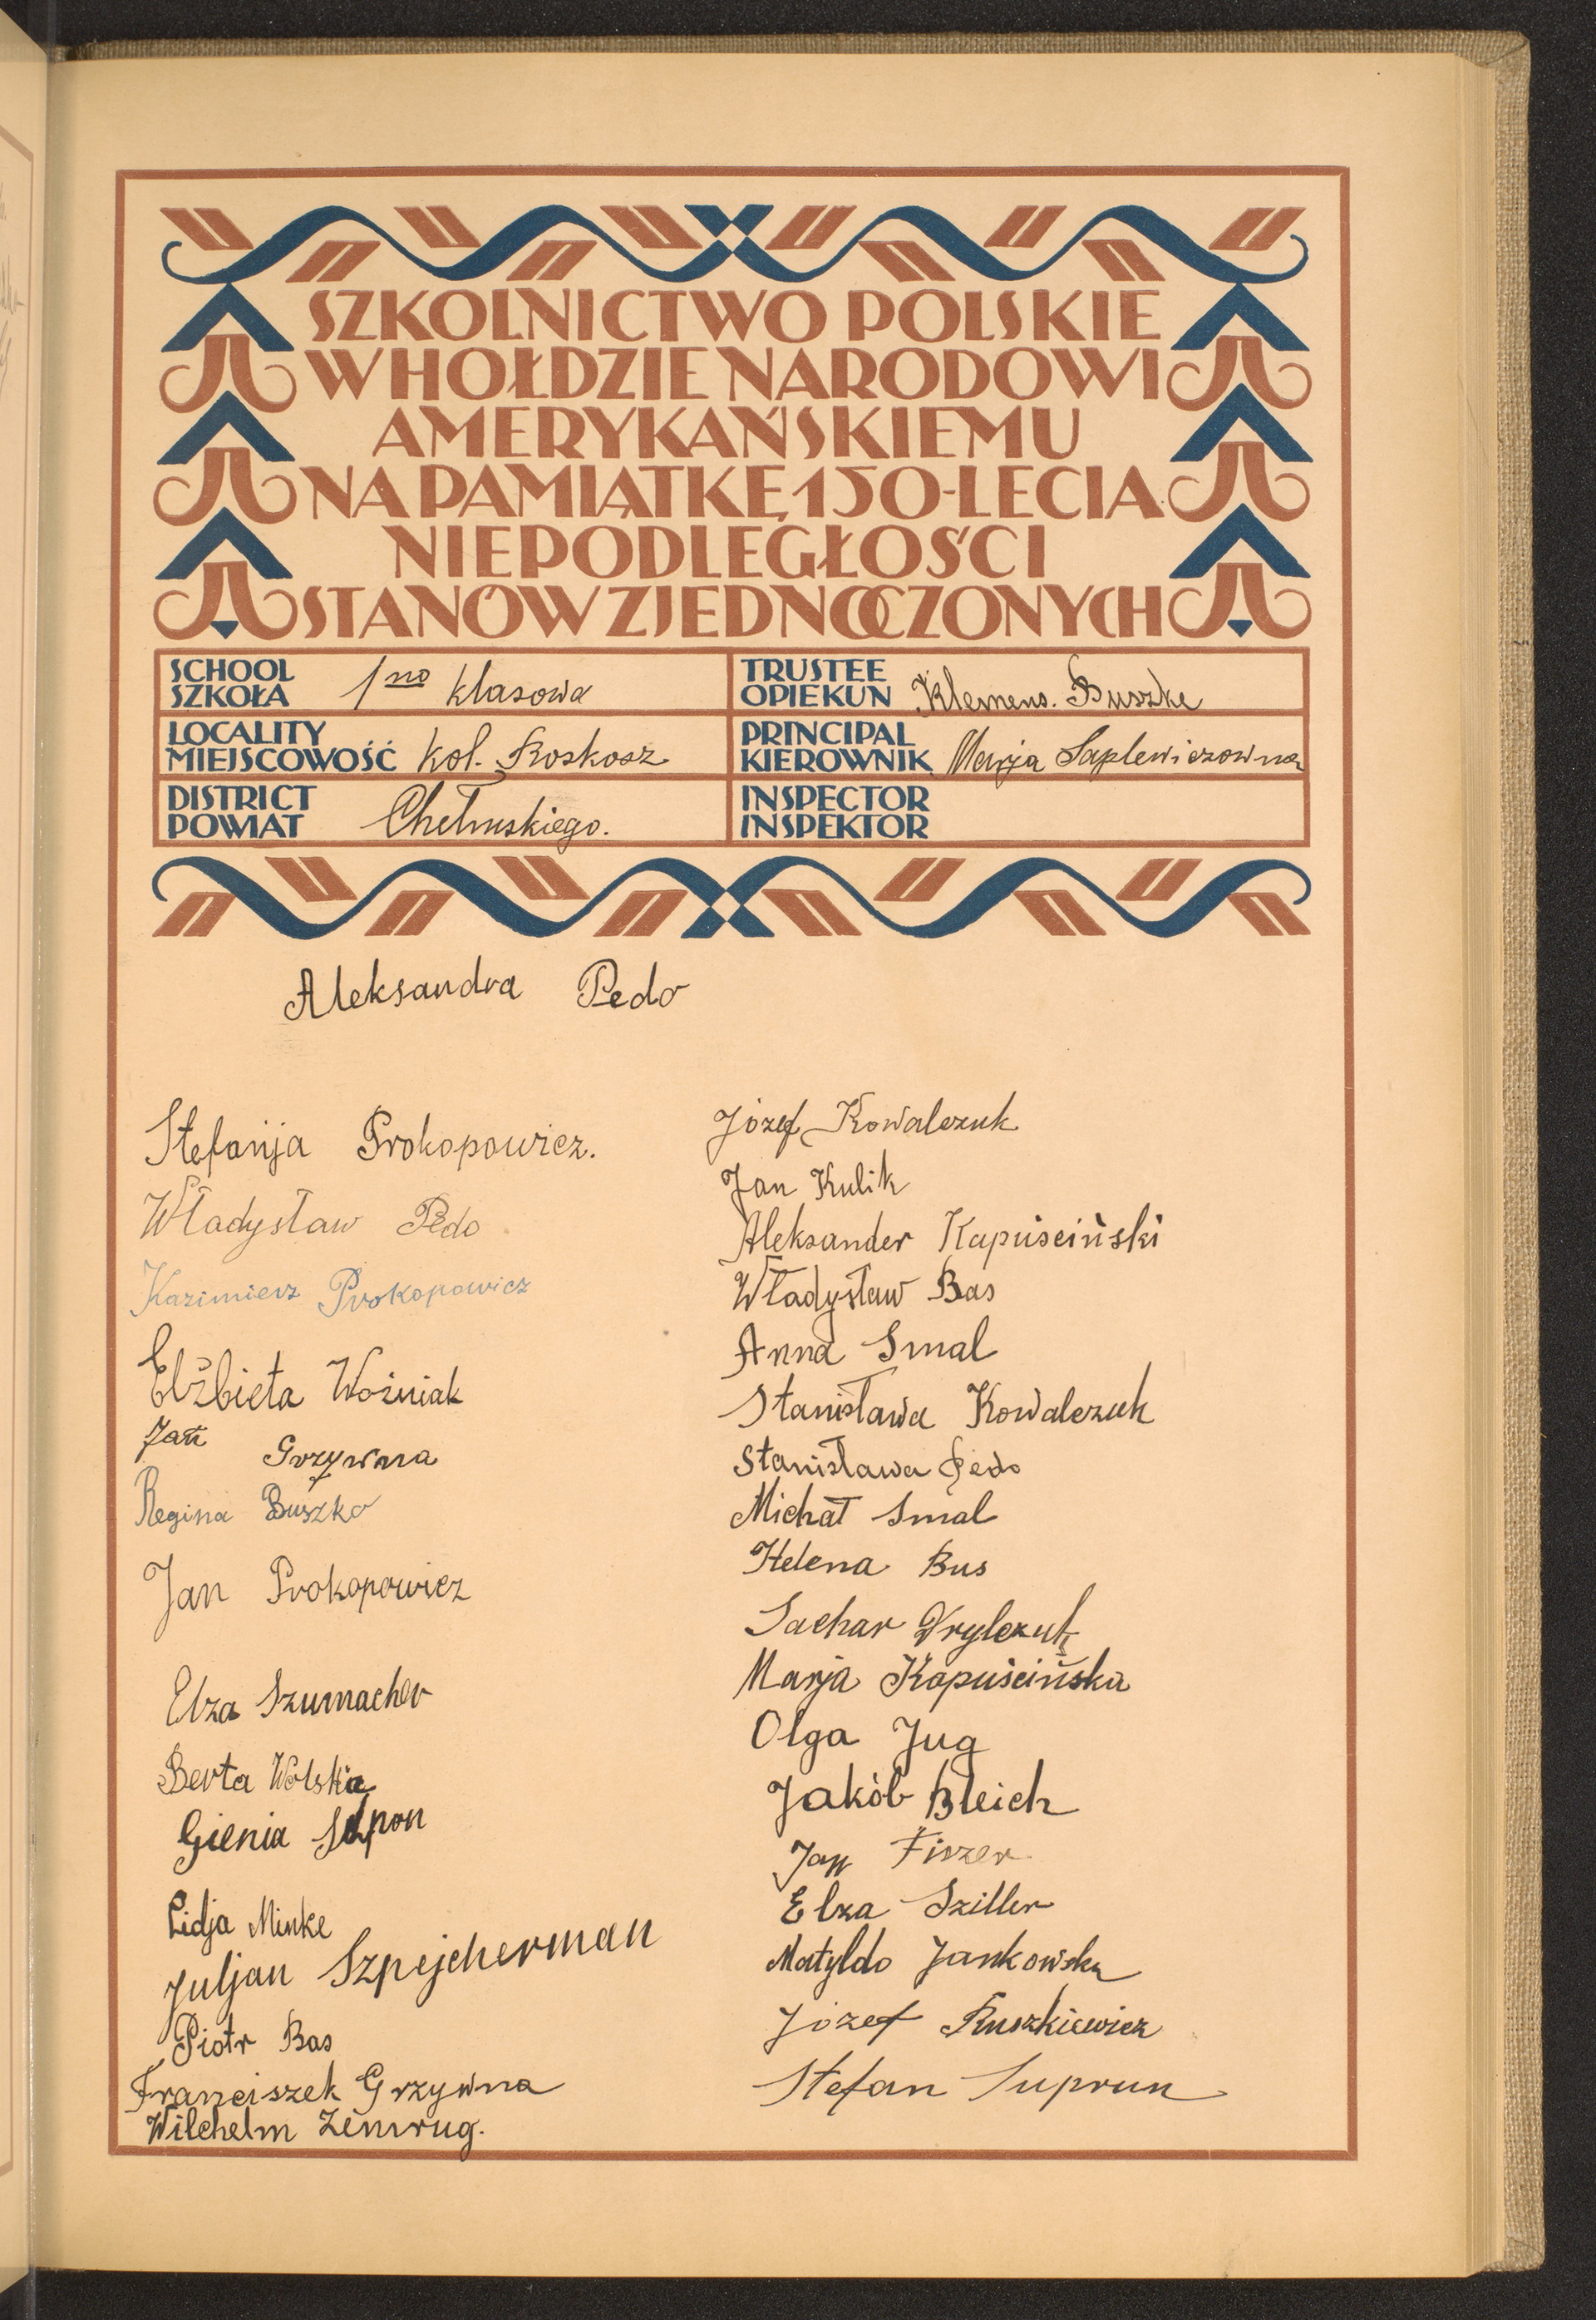 SZKOLNICTWO POLSKIE
W HOŁDZIE NARODOWI
AMERYKAŃSKIEMU
NA PAMIĄTKĘ 150-LECIA
NIEPODLEGŁOŚCI
STANÓW ZJEDNOCZONYCH
SCHOOL
SZKOŁA 1no klasowa
TRUSTEE
OPIEKUN Klemens. Buszke
LOCALITY
MIEJSCOWOŚĆ kol. Roskosz
PRINCIPAL
KIEROWNIK Marja Saplewiczowna
DISTRICT
POWIAT Chełmskiego.
INSPECTOR
INSPEKTOR
Aleksandra Pedo
Stefanja Prokopowicz.
Władysław Pedo
Kazimierz Prokopowicz
Elżbieta Woźniak
Jan Grzywna
Regina Buszko
Jan Prokopowicz
Elza Szumacher
Berta Wolska
Gienia
Lidja Minke
Juljan Szpejcherman
Piotr Bas
Franciszek Grzywna
Wilchelm Zemrug.
Józef Kowalczuk
Jan Kulik
Aleksander Kapuściński
Władysław Bas
Anna Smal
Stanisława Kowalczuk
Stanisława Pedo
Michał Smal
Helena Bus
Sachar
Marja Kapuścińska
Olga Jug
Jakób Bleich
Jan Fiszer
Elza Sziller
Matyldo Jankowska
Józef Ruszkiewicz
Stefan Suprun